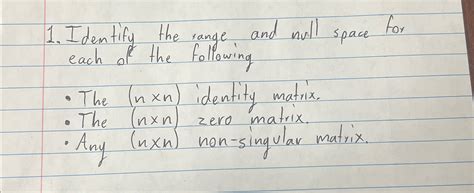 1. Identify the range and null space for
each of the following
• The (n×n) identity matrix.
• The (n×n) zero matrix.
• Any (n×n) non-singular matrix.